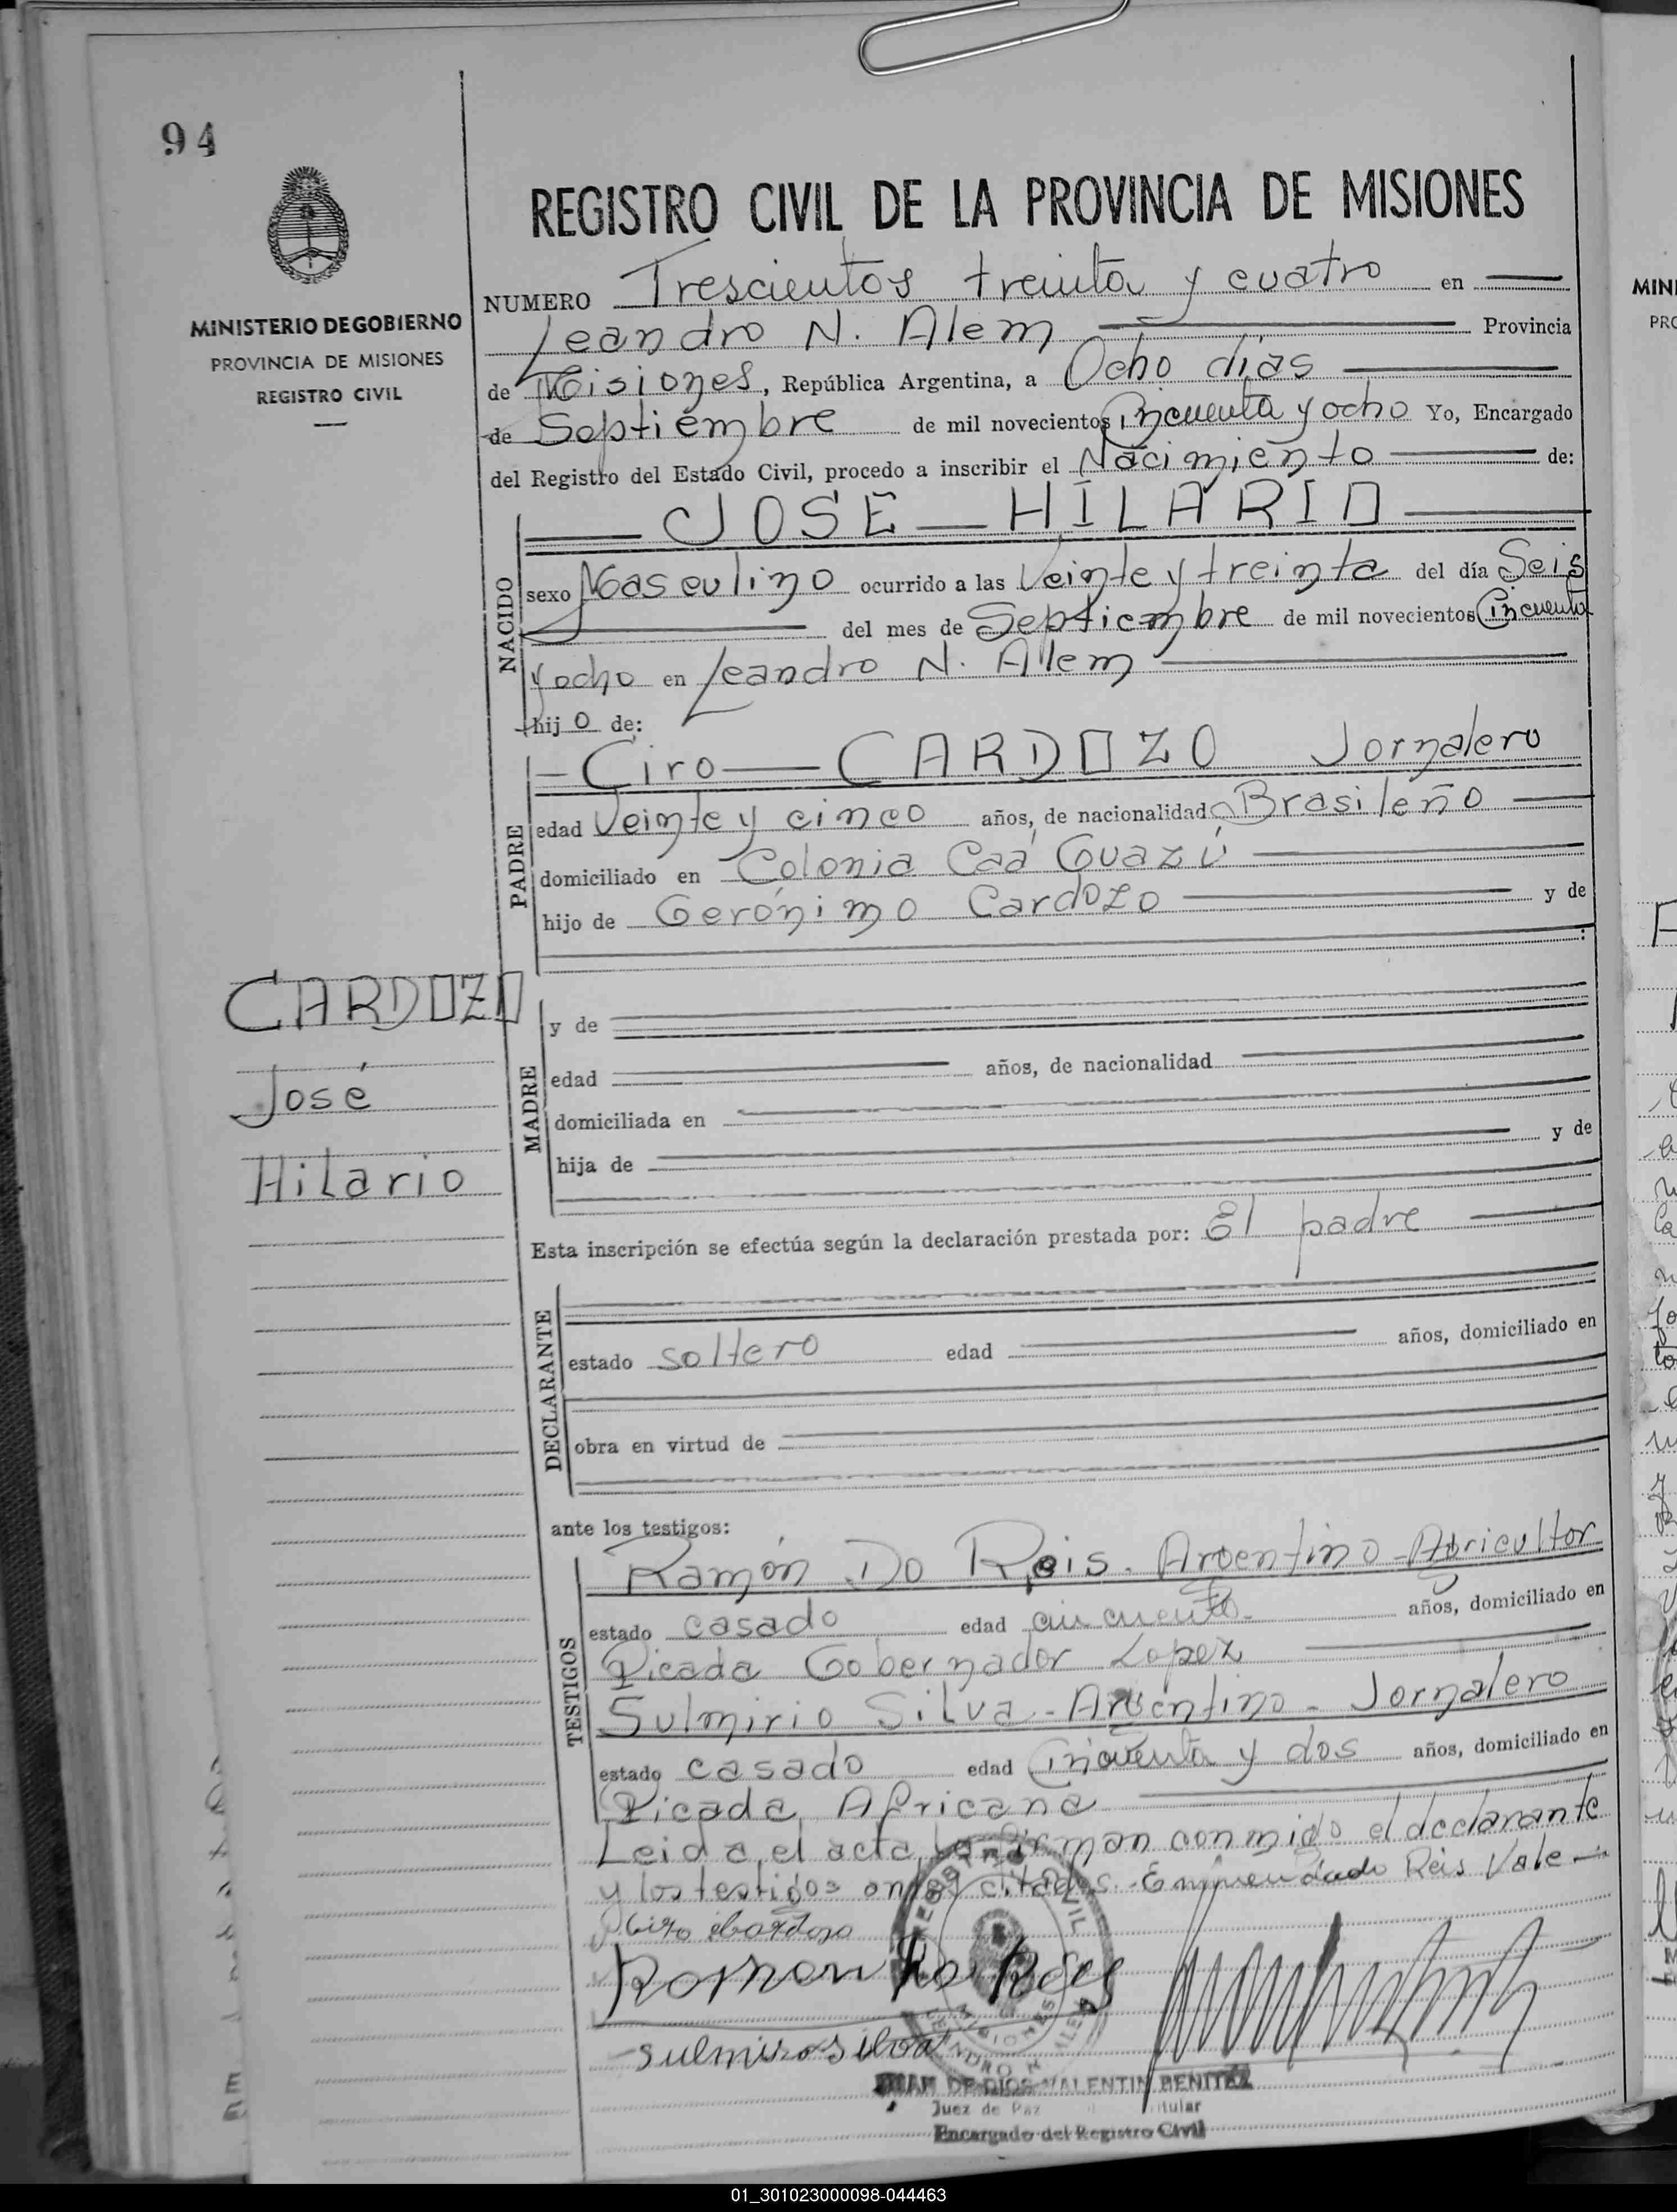 94
MINISTERIO DE GOBIERNO
PROVINCIA DE MISIONES
REGISTRO CIVIL
REGISTRO CIVIL DE LA PROVINCIA DE MISIONES
NUMERO Trescientos treinta y cuatro en
Leandro N. Alem Provincia
de Misiones, República Argentina, a Ocho días
de Septiembre de mil novecientos Cincuenta y ocho Yo, Encargado
del Registro del Estado Civil, procedo a inscribir el Nacimiento de:
NACIDO
JOSE HILARIO
sexo Masculino ocurrido a las Veinte y treinta del día Seis
del mes de Septiembre de mil novecientos Cincuenta
y ocho en Leandro N. Allem
hijo de:
PADRE
Ciro CARDOZO Jornalero
edad Veinte y cinco años, de nacionalidad Brasileño
domiciliado en Colonia Caá Guazú
hijo de Gerónimo Cardozo y de
:
CARDOZO
José
Hilario
MADRE
y de
edad años, de nacionalidad
domiciliada en
hija de y de
Esta inscripción se efectúa según la declaración prestada por: El padre
DECLARANTE
estado soltero edad años, domiciliado en
obra en virtud de
ante los testigos:
TESTIGOS
Ramón Do Reis. Argentino - Agricultor
estado casado edad cincuenta. años, domiciliado en
Picada Gobernador Lopez
Sulmirio Silva - Argentino - Jornalero
estado casado edad Cincuenta y dos años, domiciliado en
Picada Africana
Leida el acta la firman conmigo el declarante
y los testigos antes citados. Enmendado Reis Vale
Ciro Cardozo
Ramon
Sulmiro Silva
REGISTRO CIVIL
MISIONES
LEANDRO N. ALEM
JUAN DE DIOS VALENTIN BENITEZ
Juez de Paz Titular
Encargado del Registro Civil
MIN
PRO
01_301023000098-044463